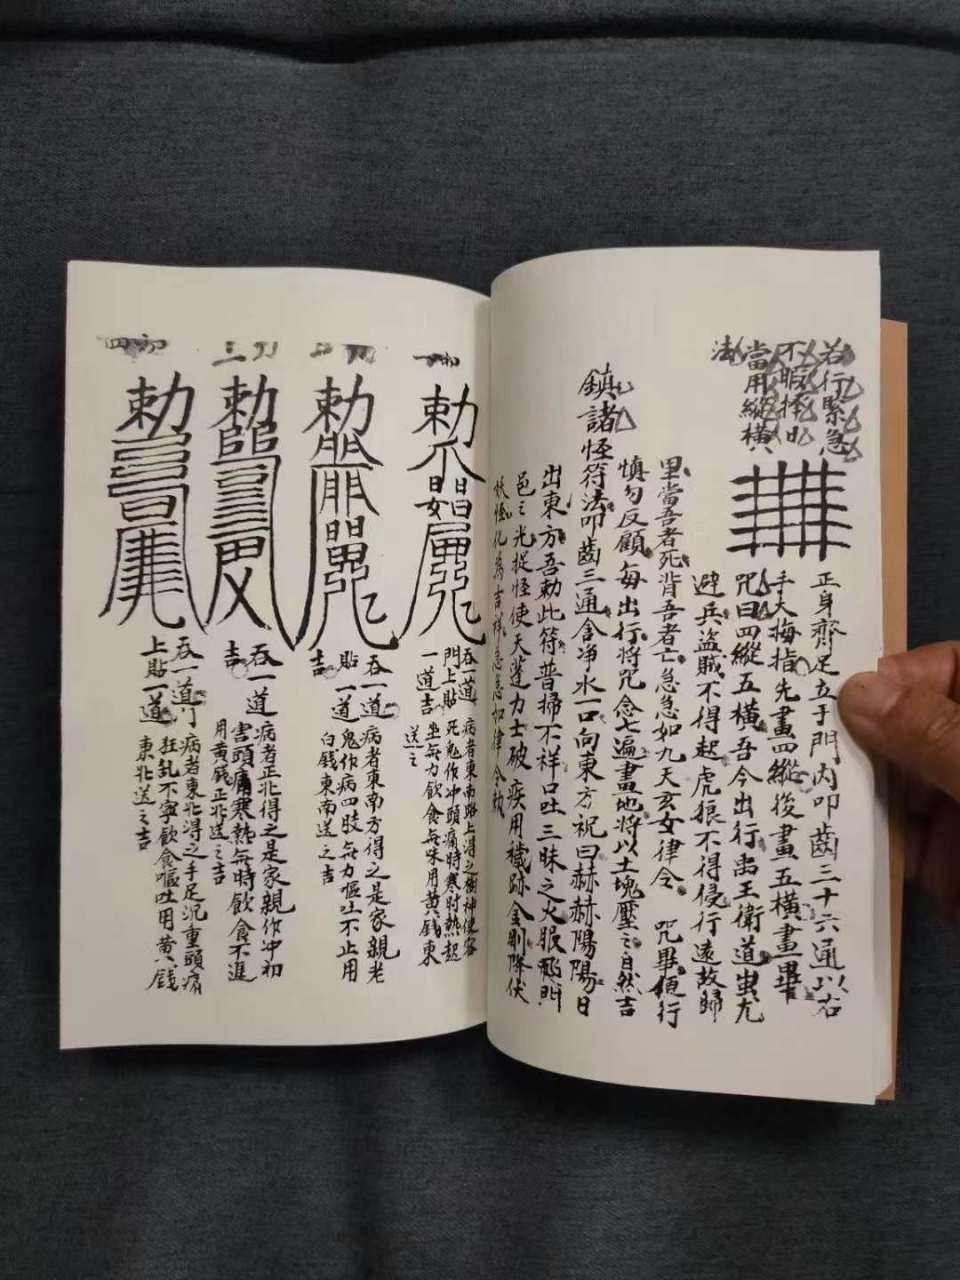 若行緊急
不暇擇日
當用縱橫
法
正身齊足立于門內叩齒三十六通以右
手大梅指先畫四縱後畫五橫畫畢
咒曰四縱五橫吾今出行禹王衛道蚩尤
避兵盜賊不得起虎狼不得侵行遠故歸
里當吾者死背吾者亡急急如九天玄女律令 咒畢便行
慎勿反顧每出行將咒念七遍畫地將以土塊壓之自然吉
鎮諸怪符法叩齒三通含净水一口向東方祝曰赫赫陽陽日
出東方吾勅此符普掃不祥口吐三昧之火服飛門
邑之光捉怪使天蓬力士破疾用穢跡金剛降伏
妖怪化為吉祥急急如律令勅
初一
勅
吞一道
門上貼
一道吉
病者東南路上得之樹神使客
死鬼作冲頭痛時寒时熱起
坐無力飲食無味用黄錢東
送之
初二
勅
吞一道
貼一道
吉
病者東南方得之是家親老
鬼作病四肢無力嘔吐不止用
白錢東南送之吉
初三
勅
吞一道
吉
病者正北得之是家親作冲初
害頭痛寒熱無時飲食不進
用黄錢正北送之吉
初四
勅
吞一道門
上貼一道
病者東北得之手足沉重頭痛
狂乱不寧飲食嘔吐用黄錢
東北送之吉